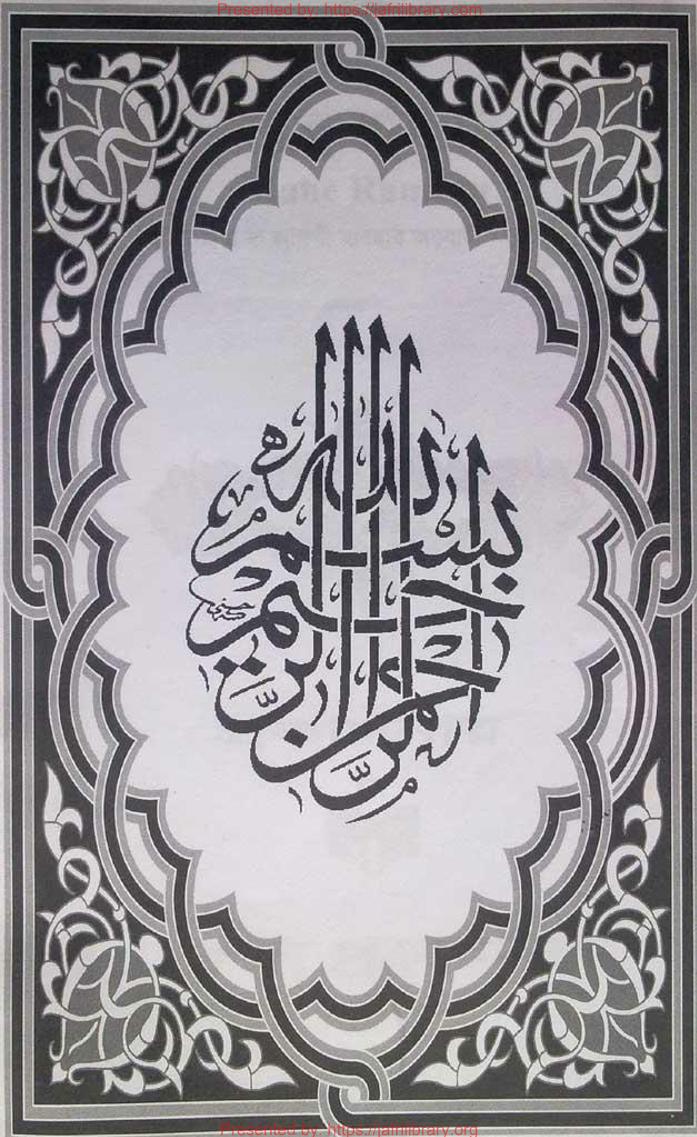 Presented by: https://jafrilibrary.com
بسم الله الرحمن الرحيم
Presented by: https://jafrilibrary.org